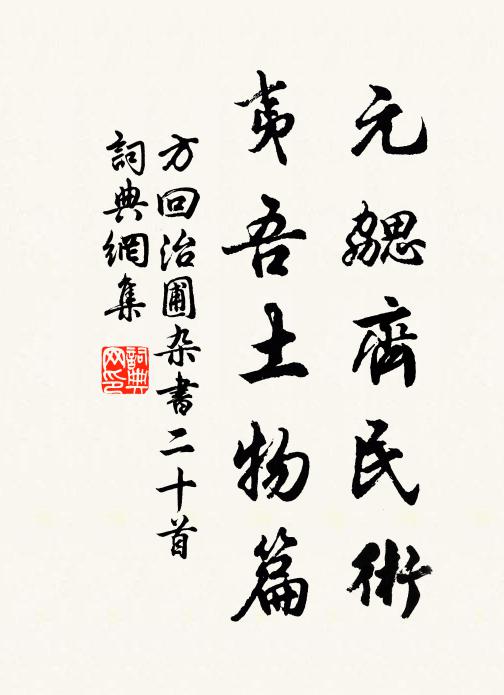 元勰齊民術
夷吾土物篇
方回治圃杂書二十首
詞典網集
詞典
网印